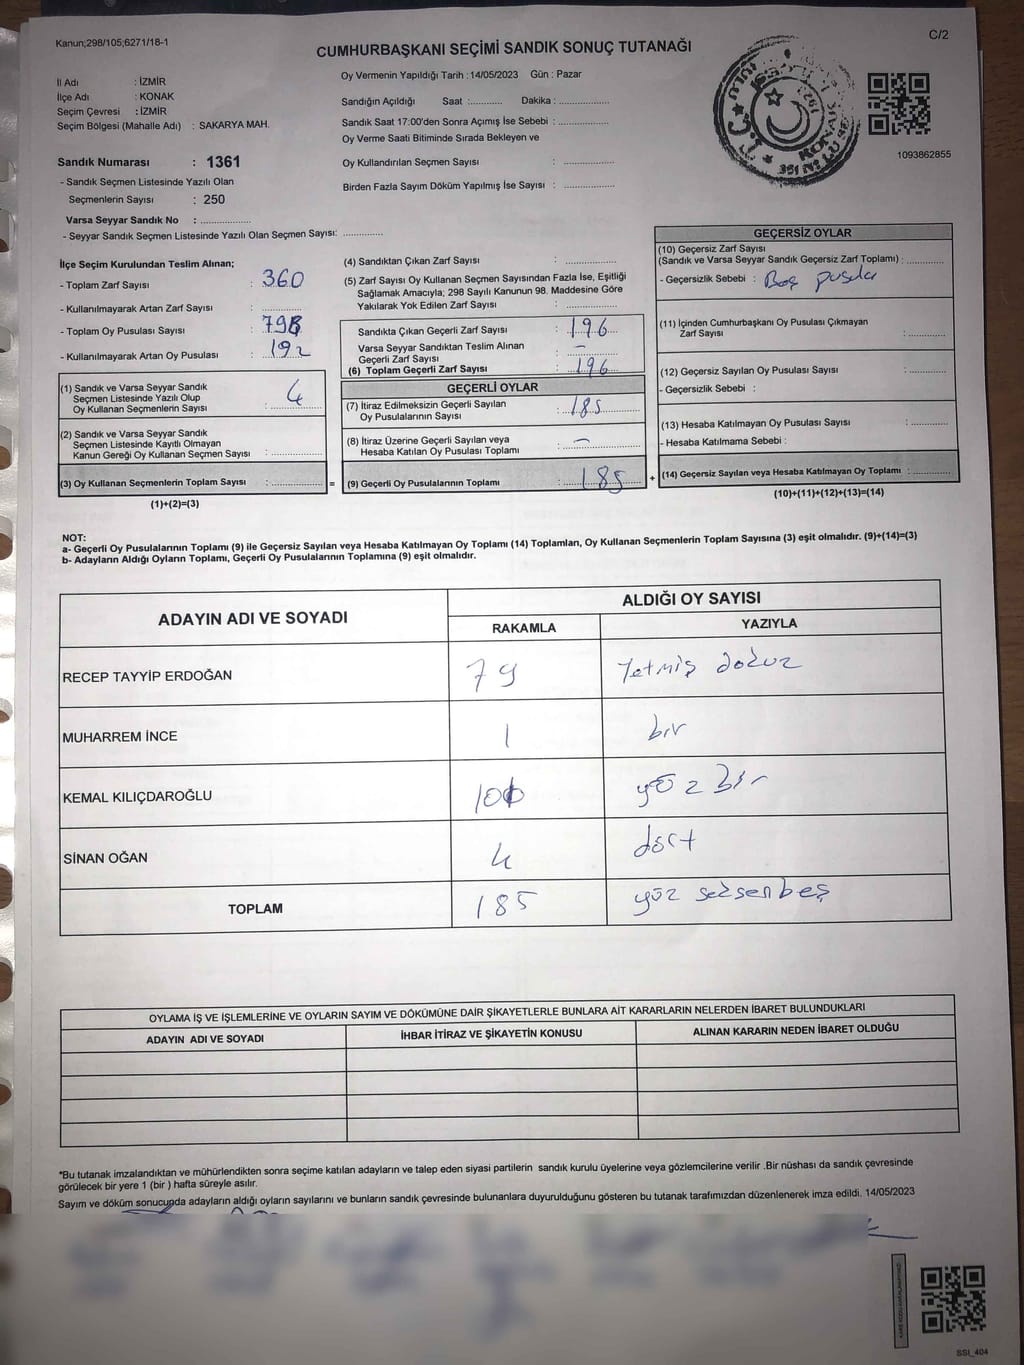 Kanun;298/105;6271/18-1
C/2
CUMHURBAŞKANI SEÇİMİ SANDIK SONUÇ TUTANAĞI
Oy Vermenin Yapıldığı Tarih :14/05/2023 Gün : Pazar
İl Adı : İZMİR
İlçe Adı : KONAK
Seçim Çevresi : İZMİR
Seçim Bölgesi (Mahalle Adı) : SAKARYA MAH.
Sandık Numarası : 1361
- Sandık Seçmen Listesinde Yazılı Olan
Seçmenlerin Sayısı : 250
Varsa Seyyar Sandık No : ....................
- Seyyar Sandık Seçmen Listesinde Yazılı Olan Seçmen Sayısı: ................
Sandığın Açıldığı Saat :............. Dakika : ....................
Sandık Saat 17:00'den Sonra Açımış İse Sebebi : ....................
Oy Verme Saati Bitiminde Sırada Bekleyen ve
Oy Kullandırılan Seçmen Sayısı : ....................
Birden Fazla Sayım Döküm Yapılmış İse Sayısı : ....................
1093862855
İlçe Seçim Kurulundan Teslim Alınan;
- Toplam Zarf Sayısı : 360
- Kullanılmayarak Artan Zarf Sayısı : ................
- Toplam Oy Pusulası Sayısı :
- Kullanılmayarak Artan Oy Pusulası : 192
(1) Sandık ve Varsa Seyyar Sandık
Seçmen Listesinde Yazılı Olup
Oy Kullanan Seçmenlerin Sayısı : 4
(2) Sandık ve Varsa Seyyar Sandık
Seçmen Listesinde Kayıtlı Olmayan
Kanun Gereği Oy Kullanan Seçmen Sayısı : ................
(3) Oy Kullanan Seçmenlerin Toplam Sayısı : ................ =
(1)+(2)=(3)
(4) Sandıktan Çıkan Zarf Sayısı : ................
(5) Zarf Sayısı Oy Kullanan Seçmen Sayısından Fazla İse, Eşitliği
Sağlamak Amacıyla; 298 Sayılı Kanunun 98. Maddesine Göre
Yakılarak Yok Edilen Zarf Sayısı : ................
Sandıkta Çıkan Geçerli Zarf Sayısı : 196
Varsa Seyyar Sandıktan Teslim Alınan
Geçerli Zarf Sayısı : –
(6) Toplam Geçerli Zarf Sayısı : 196
GEÇERLİ OYLAR
(7) İtiraz Edilmeksizin Geçerli Sayılan
Oy Pusulalarının Sayısı : 185
(8) İtiraz Üzerine Geçerli Sayılan veya
Hesaba Katılan Oy Pusulası Toplamı : –
(9) Geçerli Oy Pusulalarının Toplamı : 185 +
GEÇERSİZ OYLAR
(10) Geçersiz Zarf Sayısı
(Sandık ve Varsa Seyyar Sandık Geçersiz Zarf Toplamı) : ............
- Geçersizlik Sebebi : Boş pusula
(11) İçinden Cumhurbaşkanı Oy Pusulası Çıkmayan
Zarf Sayısı : ............
(12) Geçersiz Sayılan Oy Pusulası Sayısı : ............
- Geçersizlik Sebebi :
(13) Hesaba Katılmayan Oy Pusulası Sayısı : ............
- Hesaba Katılmama Sebebi :
(14) Geçersiz Sayılan veya Hesaba Katılmayan Oy Toplamı : ............
(10)+(11)+(12)+(13)=(14)
NOT:
a- Geçerli Oy Pusulalarının Toplamı (9) ile Geçersiz Sayılan veya Hesaba Katılmayan Oy Toplamı (14) Toplamları, Oy Kullanan Seçmenlerin Toplam Sayısına (3) eşit olmalıdır. (9)+(14)=(3)
b- Adayların Aldığı Oyların Toplamı, Geçerli Oy Pusulalarının Toplamına (9) eşit olmalıdır.
ADAYIN ADI VE SOYADI
ALDIĞI OY SAYISI
RAKAMLA YAZIYLA
RECEP TAYYİP ERDOĞAN 79 Yetmiş dokuz
MUHARREM İNCE 1 bir
KEMAL KILIÇDAROĞLU 101 yüz bir
SİNAN OĞAN 4 dört
TOPLAM 185 yüz seksenbeş
OYLAMA İŞ VE İŞLEMLERİNE VE OYLARIN SAYIM VE DÖKÜMÜNE DAİR ŞİKAYETLERLE BUNLARA AİT KARARLARIN NELERDEN İBARET BULUNDUKLARI
ADAYIN ADI VE SOYADI İHBAR İTİRAZ VE ŞİKAYETİN KONUSU ALINAN KARARIN NEDEN İBARET OLDUĞU
*Bu tutanak imzalandıktan ve mühürlendikten sonra seçime katılan adayların ve talep eden siyasi partilerin sandık kurulu üyelerine veya gözlemcilerine verilir .Bir nüshası da sandık çevresinde
görülecek bir yere 1 (bir ) hafta süreyle asılır.
Sayım ve döküm sonucupda adayların aldığı oyların sayılarını ve bunların sandık çevresinde bulunanlara duyurulduğunu gösteren bu tutanak tarafımızdan düzenlenerek imza edildi. 14/05/2023
SSI_404